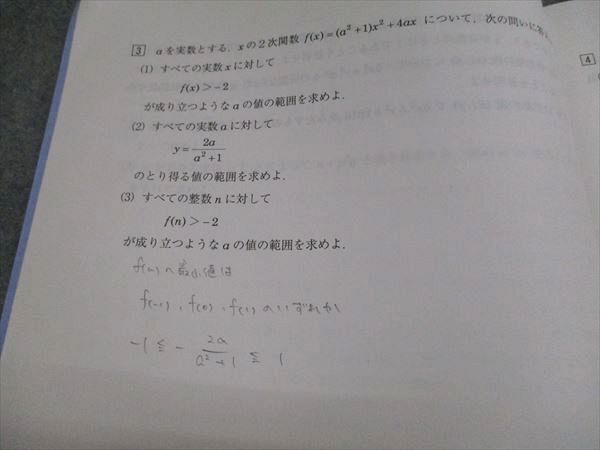 3 aを実数とする．xの2次関数 f(x)=(a²+1)x²+4ax について，次の問いに答
(1) すべての実数xに対して
f(x)>−2
が成り立つようなaの値の範囲を求めよ．
(2) すべての実数aに対して
y=2a/(a²+1)
のとり得る値の範囲を求めよ．
(3) すべての整数nに対して
f(n)>−2
が成り立つようなaの値の範囲を求めよ．
f(n)の最小値は
f(-1), f(0), f(1)のいずれか
-1≦-2a/(a²+1)≦1
4